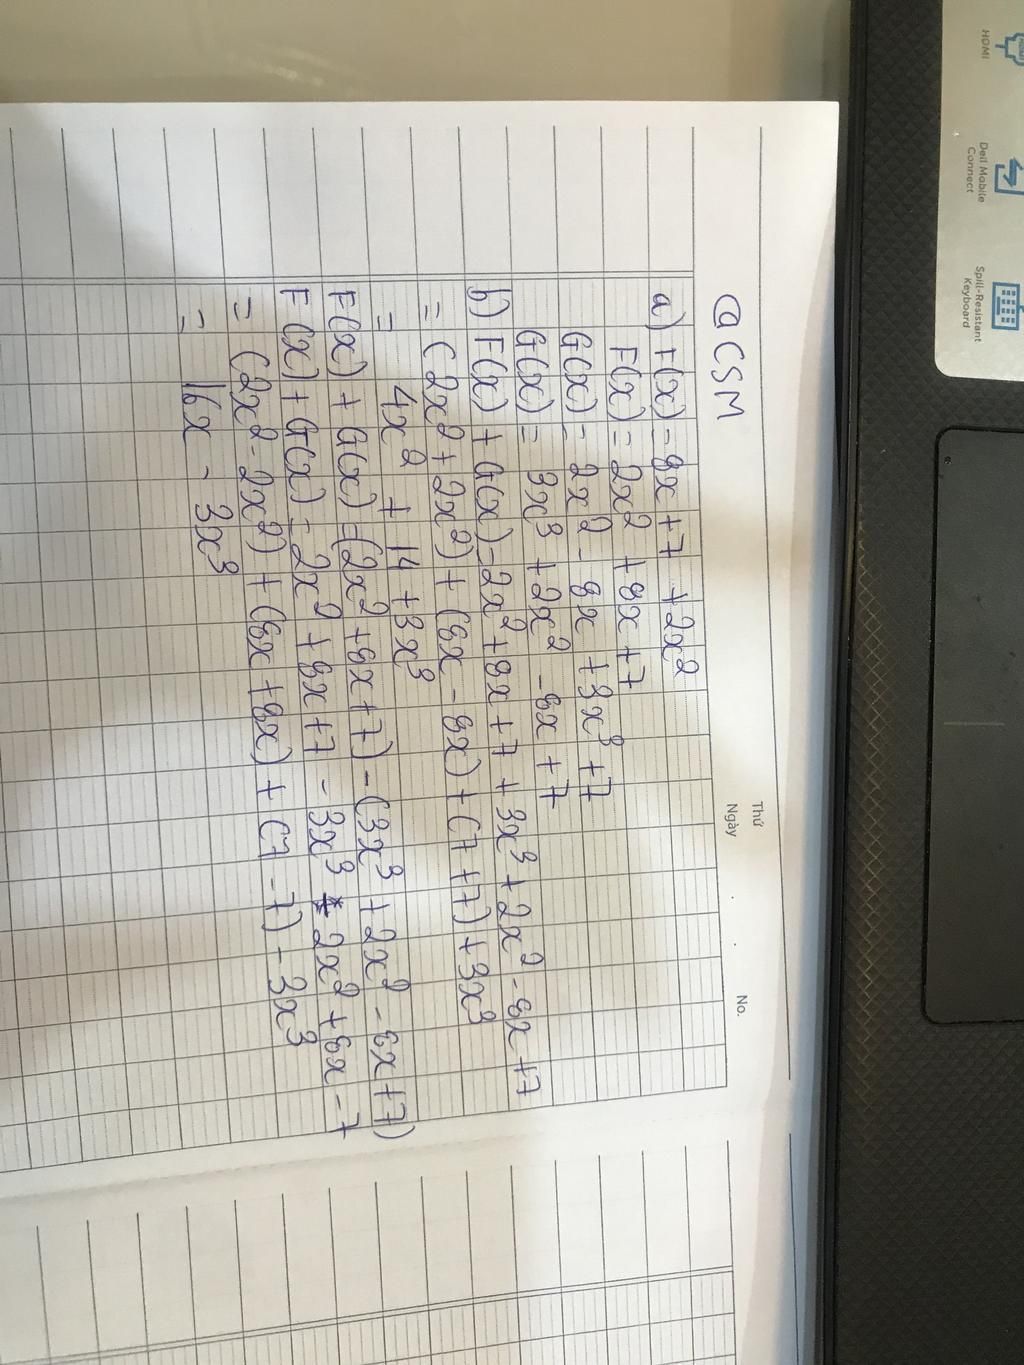 HDMI
Dell Mobile
Connect
Spill-Resistant
Keyboard
Thứ
Ngày
No.
@ CSM
a) F(x) = 8x + 7 + 2x²
F(x) = 2x² + 8x + 7
G(x) = 2x² - 8x + 3x³ + 7
G(x) = 3x³ + 2x² - 8x + 7
b) F(x) + G(x) = 2x² + 8x + 7 + 3x³ + 2x² - 8x + 7
= (2x² + 2x²) + (8x - 8x) + (7 + 7) + 3x³
= 4x² + 14 + 3x³
F(x) + G(x) = (2x² + 8x + 7) - (3x³ + 2x² - 8x + 7)
F(x) + G(x) = 2x² + 8x + 7 - 3x³ - 2x² + 8x - 7
= (2x² - 2x²) + (8x + 8x) + (7 - 7) - 3x³
= 16x - 3x³